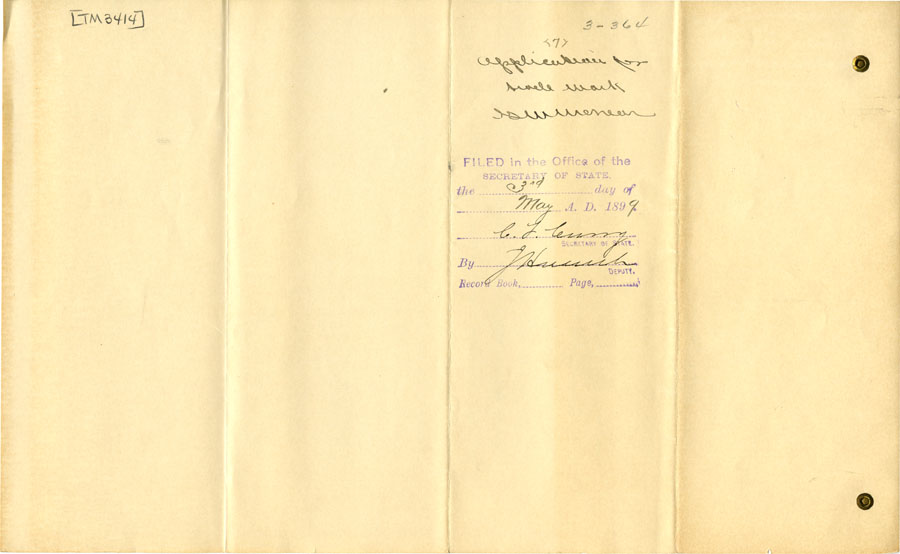 [TM3414]
3-364
<7>
Application for
trade mark
G W McNear
FILED in the Office of the
SECRETARY OF STATE.
the 3rd day of
May A. D. 1899.
C. F. Curry
SECRETARY OF STATE.
By J
DEPUTY.
Record Book, Page,